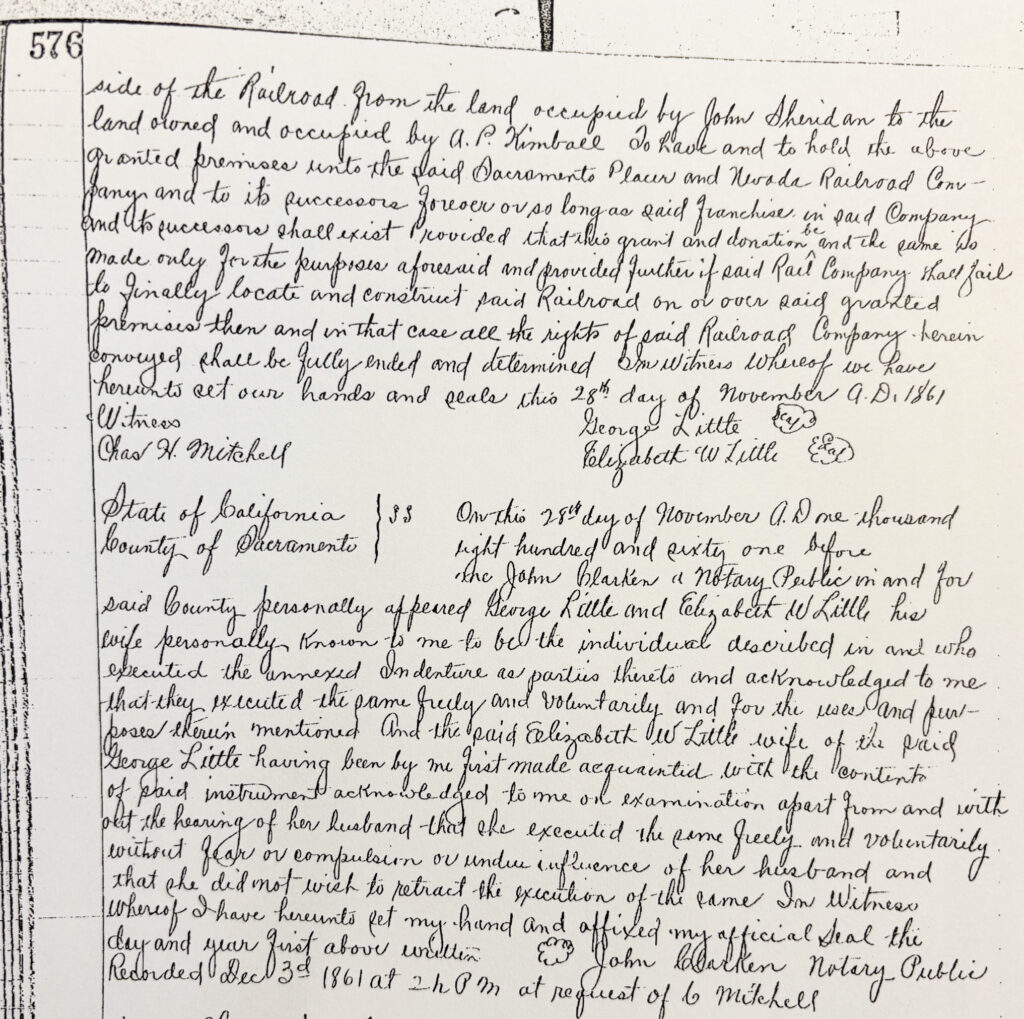 576
side of the Railroad from the land occupied by John Sheridan to the
land owned and occupied by A. P. Kimball To have and to hold the above
granted premises unto the said Sacramento Placer and Nevada Railroad Com-
pany and to its successors forever or so long as said franchise in said Company
and its successors shall exist Provided that this grant and donation be and the same is
made only for the purposes aforesaid and provided further if said Rail Company shall fail
to finally locate and construct said Railroad on or over said granted
premises then and in that case all the rights of said Railroad Company herein
conveyed shall be fully ended and determined In Witness Whereof we have
hereunto set our hands and seals this 28th day of November A.D. 1861
Witness George Little Seal
Chas H. Mitchell Elizabeth W Little Seal
State of California } SS On this 28th day of November A.D one thousand
County of Sacramento eight hundred and sixty one before
me John Clarken a Notary Public in and for
said County personally appeared George Little and Elizabeth W Little his
wife personally known to me to be the individual described in and who
executed the annexed Indenture as parties thereto and acknowledged to me
that they executed the same freely and voluntarily and for the uses and pur-
poses therein mentioned And the said Elizabeth W Little wife of the said
George Little having been by me first made acquainted with the contents
of said instrument acknowledged to me on examination apart from and with
out the hearing of her husband that she executed the same freely and voluntarily
without fear or compulsion or undue influence of her husband and
that she did not wish to retract the execution of the same In Witness
whereof I have hereunto set my hand and affixed my official Seal the
day and year first above written John Clarken Notary Public
Recorded Dec 3d 1861 at 2 h P M at request of C Mitchell